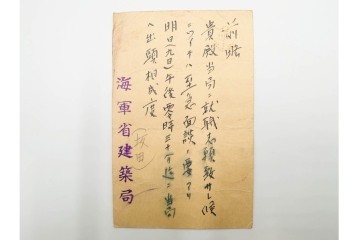 前略
貴殿当局ニ就職志願致サレ候
ニツイテハ至急面談ヲ要スルニ
明日(九日)午後零時三十分迄ニ当局
ヘ出頭相成度
(坂田)
海軍省建築局